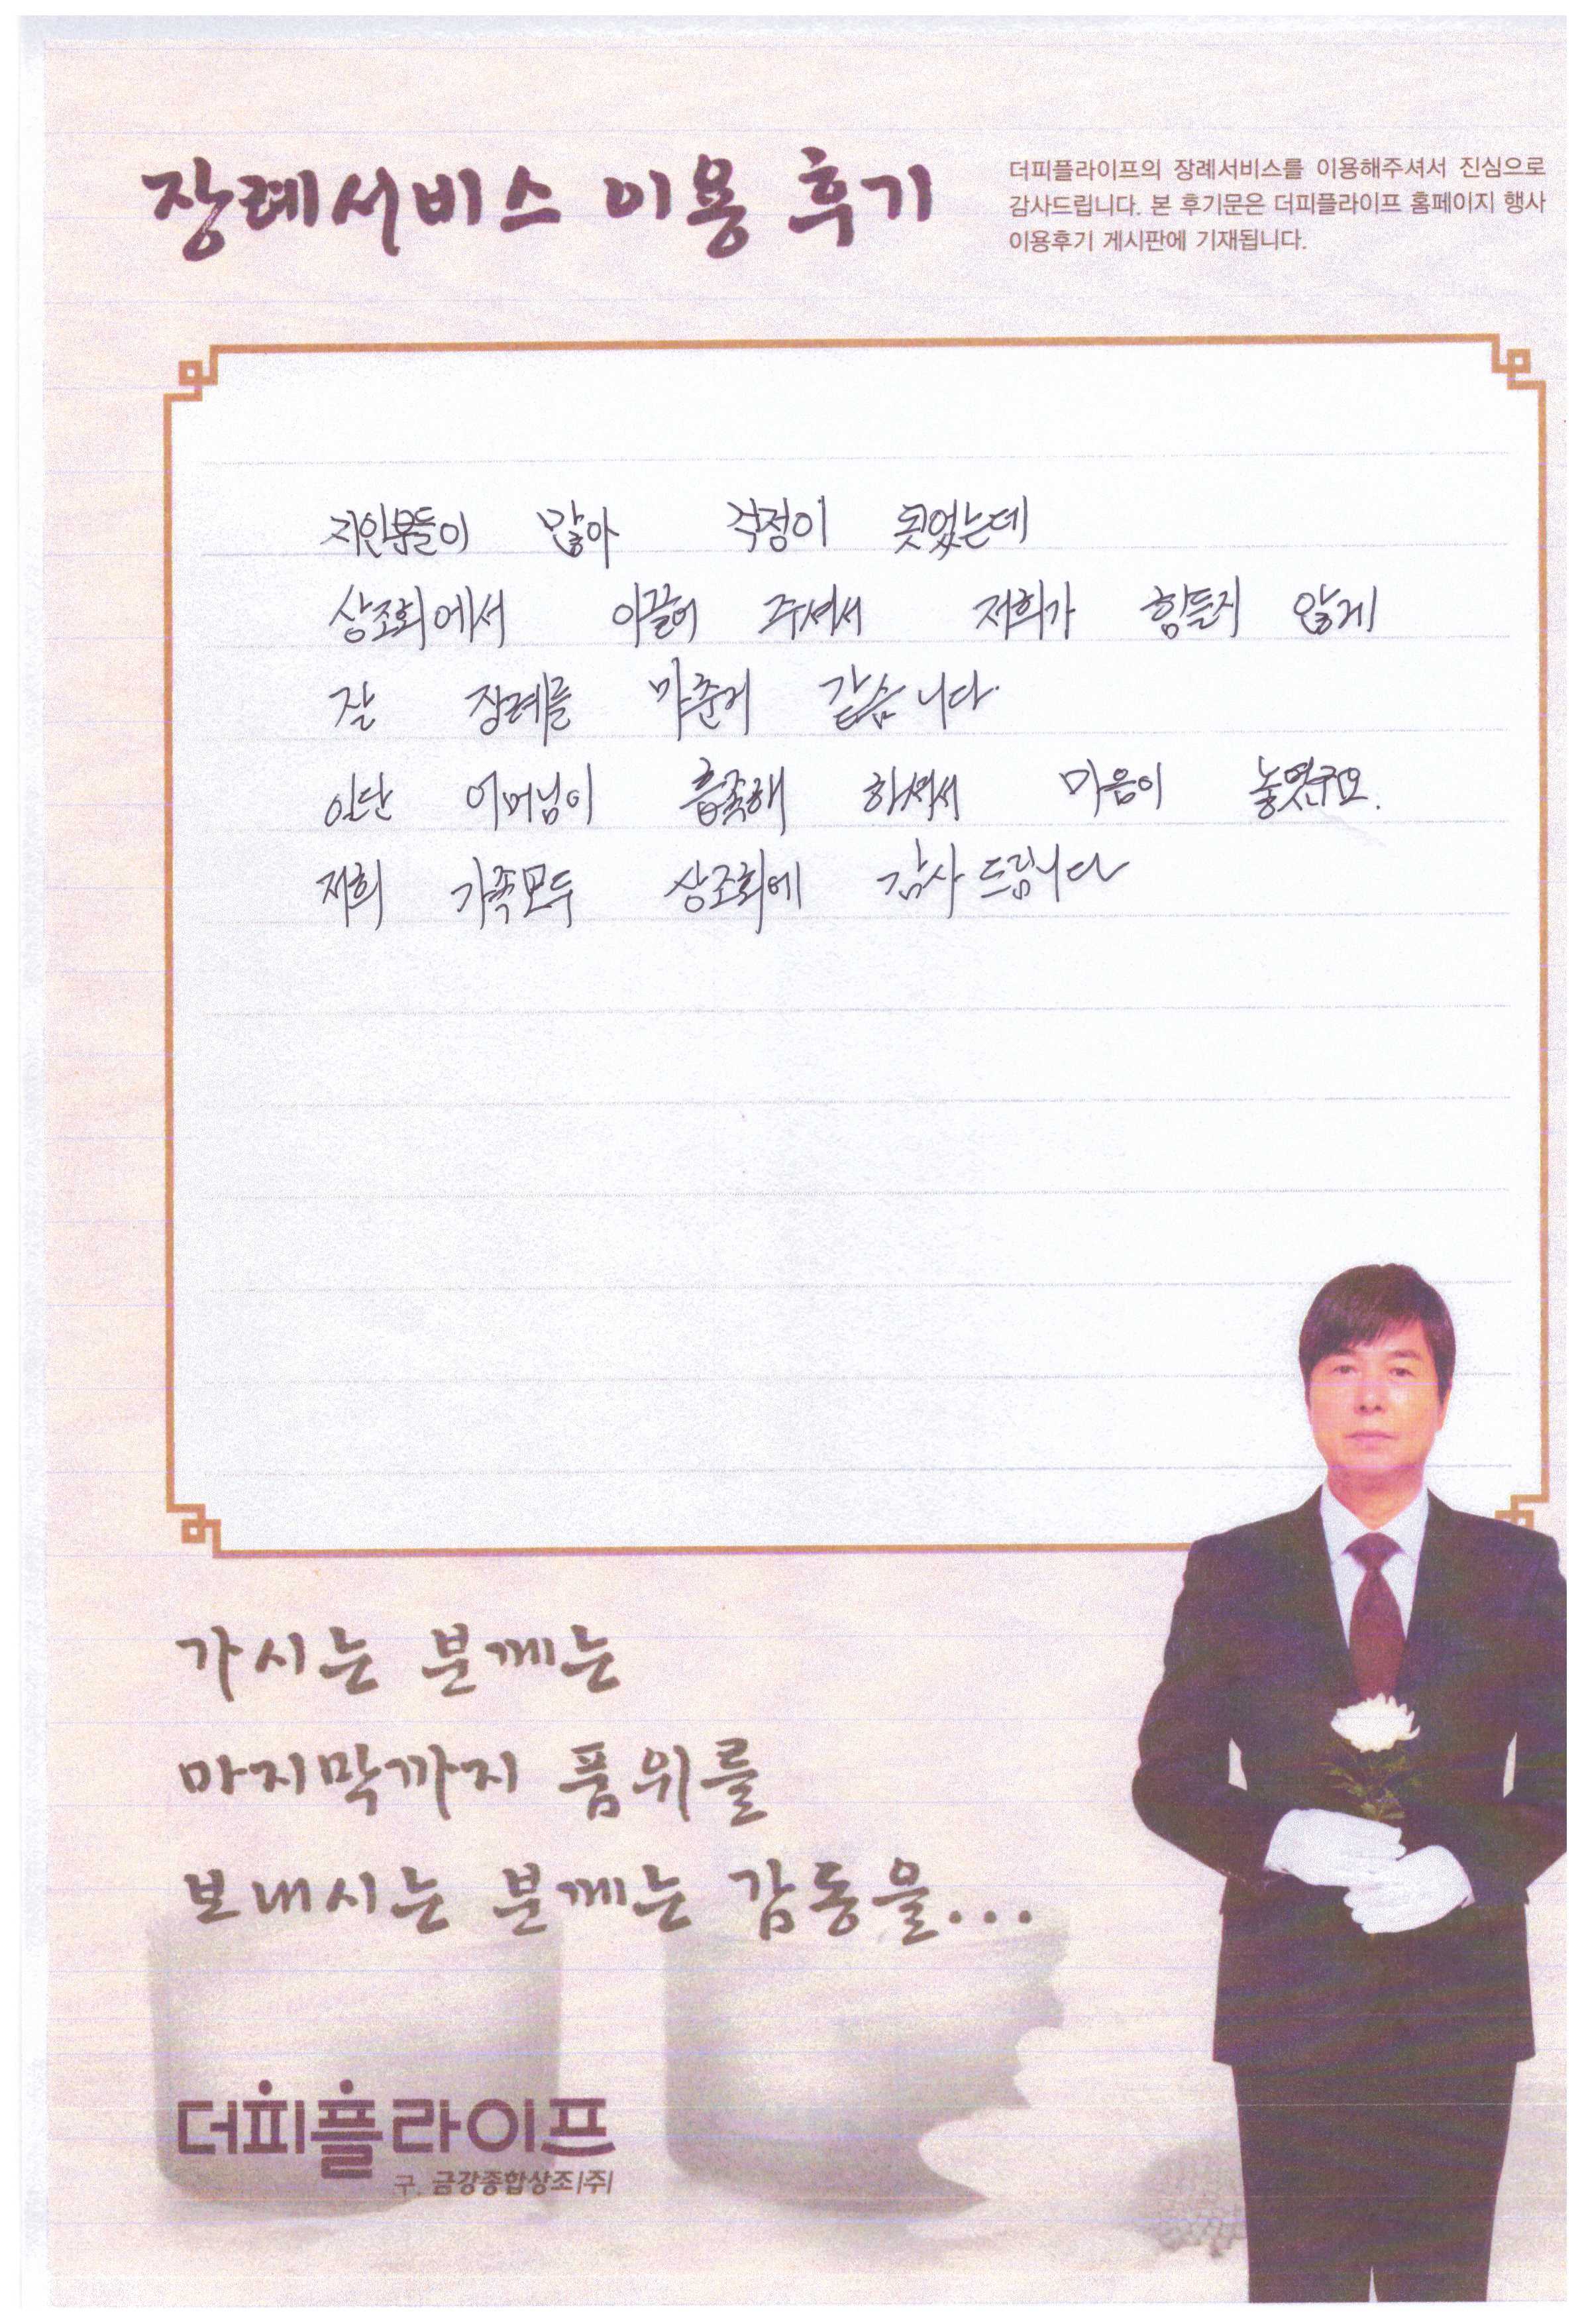 장례서비스 이용 후기
더피플라이프의 장례서비스를 이용해주셔서 진심으로
감사드립니다. 본 후기문은 더피플라이프 홈페이지 행사
이용후기 게시판에 기재됩니다.
지인분들이 많아 걱정이 됫었는데
상조회에서 이끌어 주셔서 저희가 힘들지 않게
잘 장례를 마춘거 같습니다.
일단 어머님이 흡족해 하셔서 마음이 놓였구요.
저희 가족모두 상조회에 감사드립니다
가시는 분께는
마지막까지 품위를
보내시는 분께는 감동을...
더피플라이프
구. 금강종합상조(주)